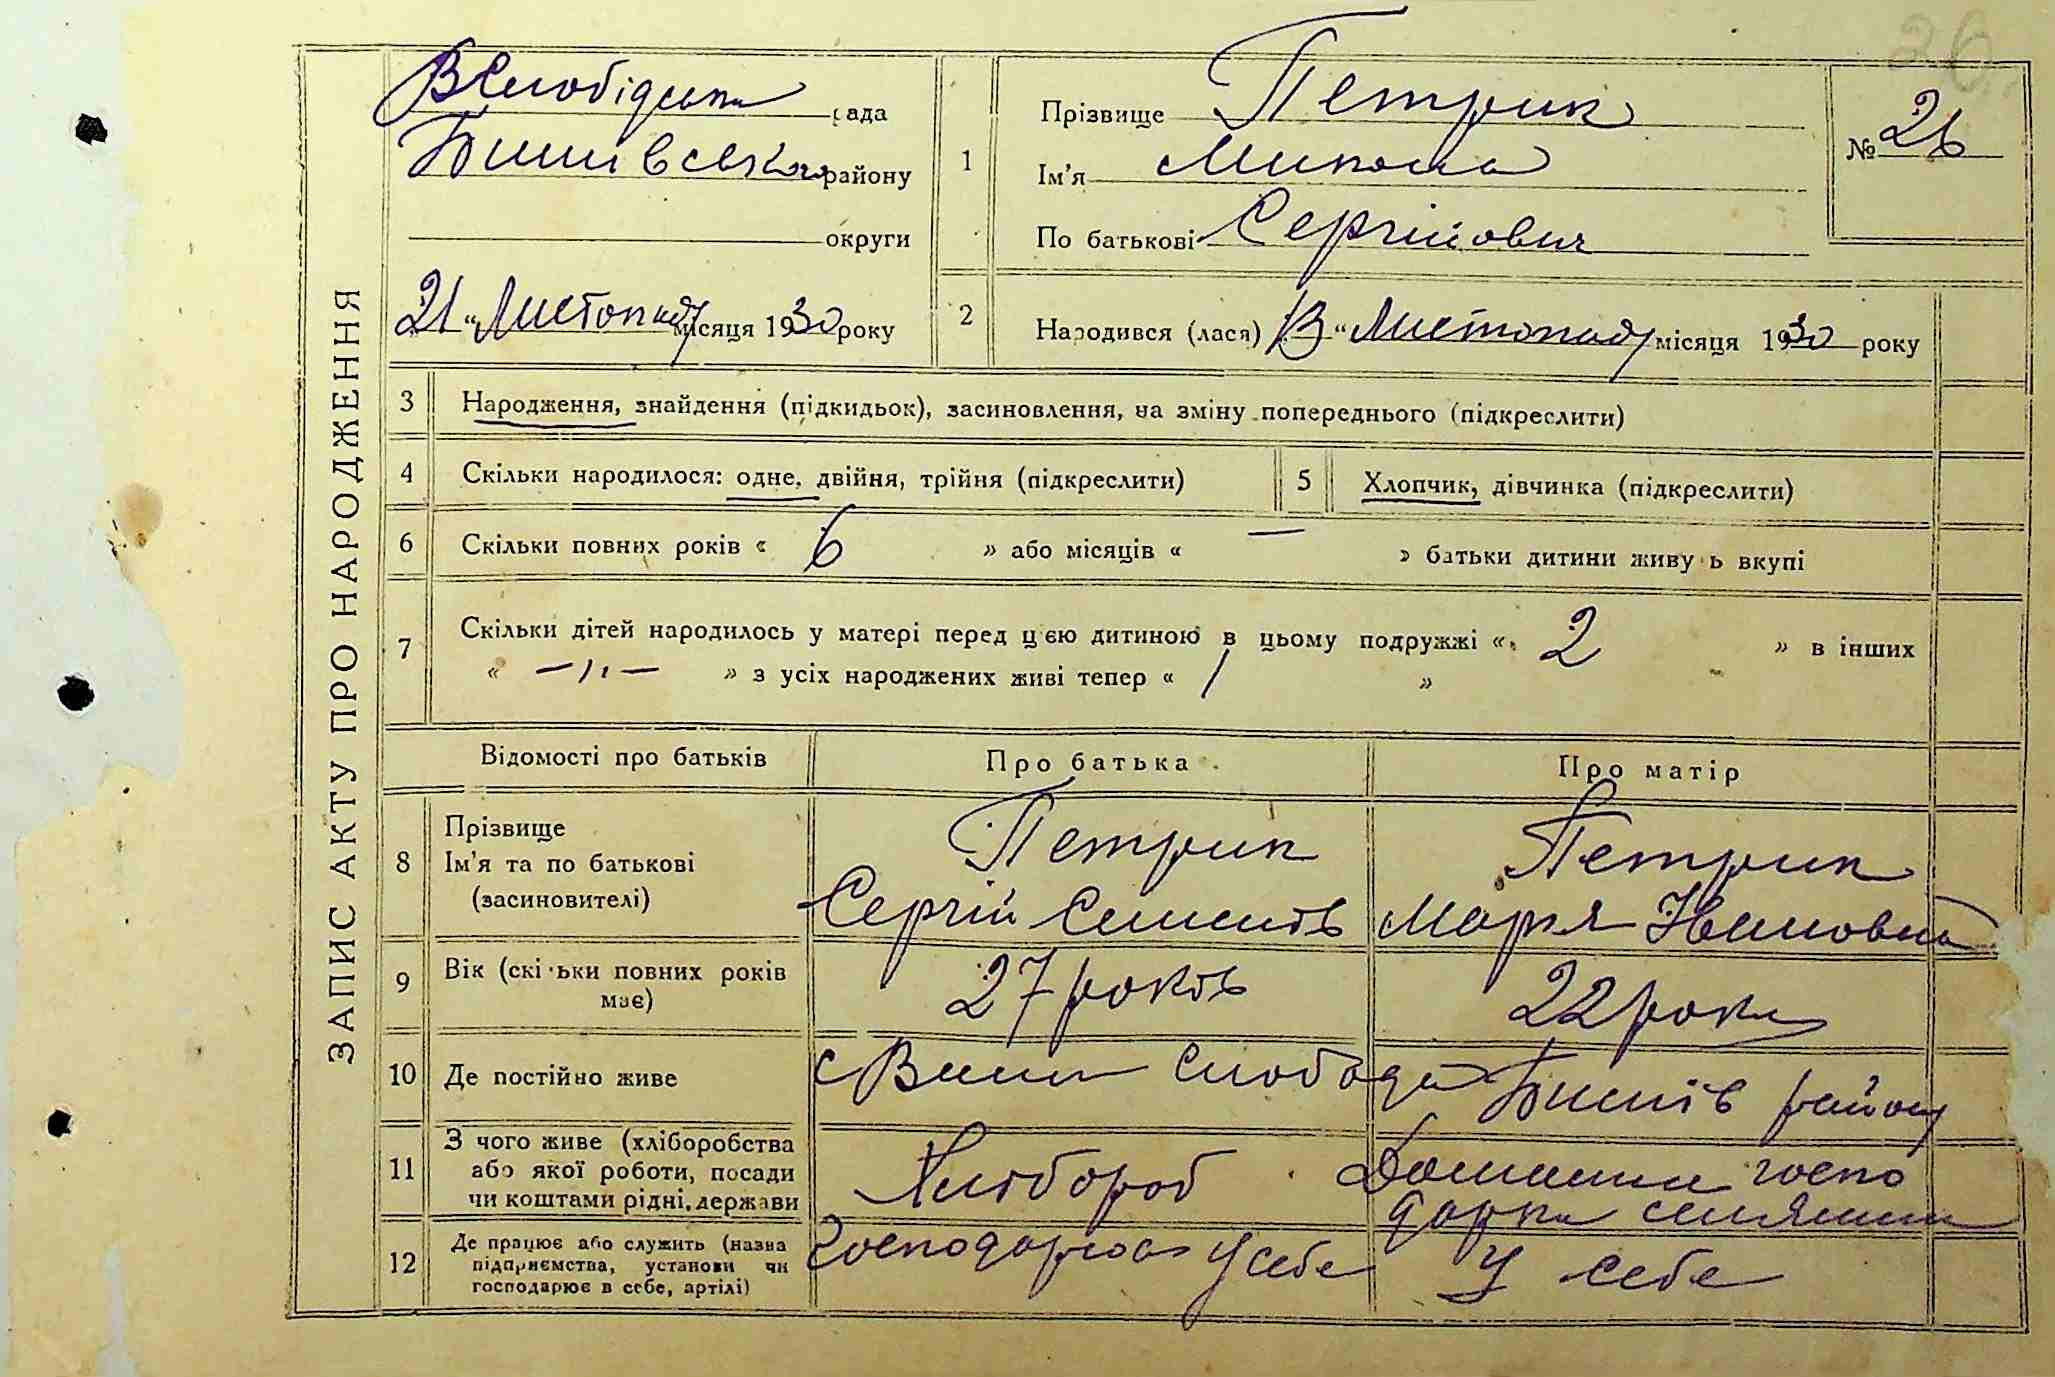 26
ЗАПИС АКТУ ПРО НАРОДЖЕННЯ
ВСлобідська рада
Бишівського району
округи
21 "Листопаду місяця 1930 року
1
Прізвище Петрик
Ім'я Микола
По батькові Сергійович
№ 26
2
Народився (лася) 13 "Листопаду місяця 1930 року
3 Народження, знайдення (підкидьок), засиновлення, на зміну попереднього (підкреслити)
4 Скільки народилося: одне, двійня, трійня (підкреслити) 5 Хлопчик, дівчинка (підкреслити)
6 Скільки повних років « 6 » або місяців « — » батьки дитини живу ь вкупі
7 Скільки дітей народилось у матері перед цією дитиною в цьому подружжі « 2 » в інших
« —"— » з усіх народжених живі тепер « 1 »
Відомості про батьків Про батька Про матір
8 Прізвище
Ім'я та по батькові
(засиновителі)
Петрик
Сергій Семенів
Петрик
Марія Ивановна
9 Вік (скільки повних років
має)
27 років 22 роки
10 Де постійно живе с Слобода Бишів району
11 З чого живе (хліборобства
або якої роботи, посади
чи коштами рідні, держави
Хлібороб
Домашня госпо
дарка селянки
12 Де працює або служить (назва
підприємства, установи чи
господарює в себе, артілі)
господарює у себе У себе